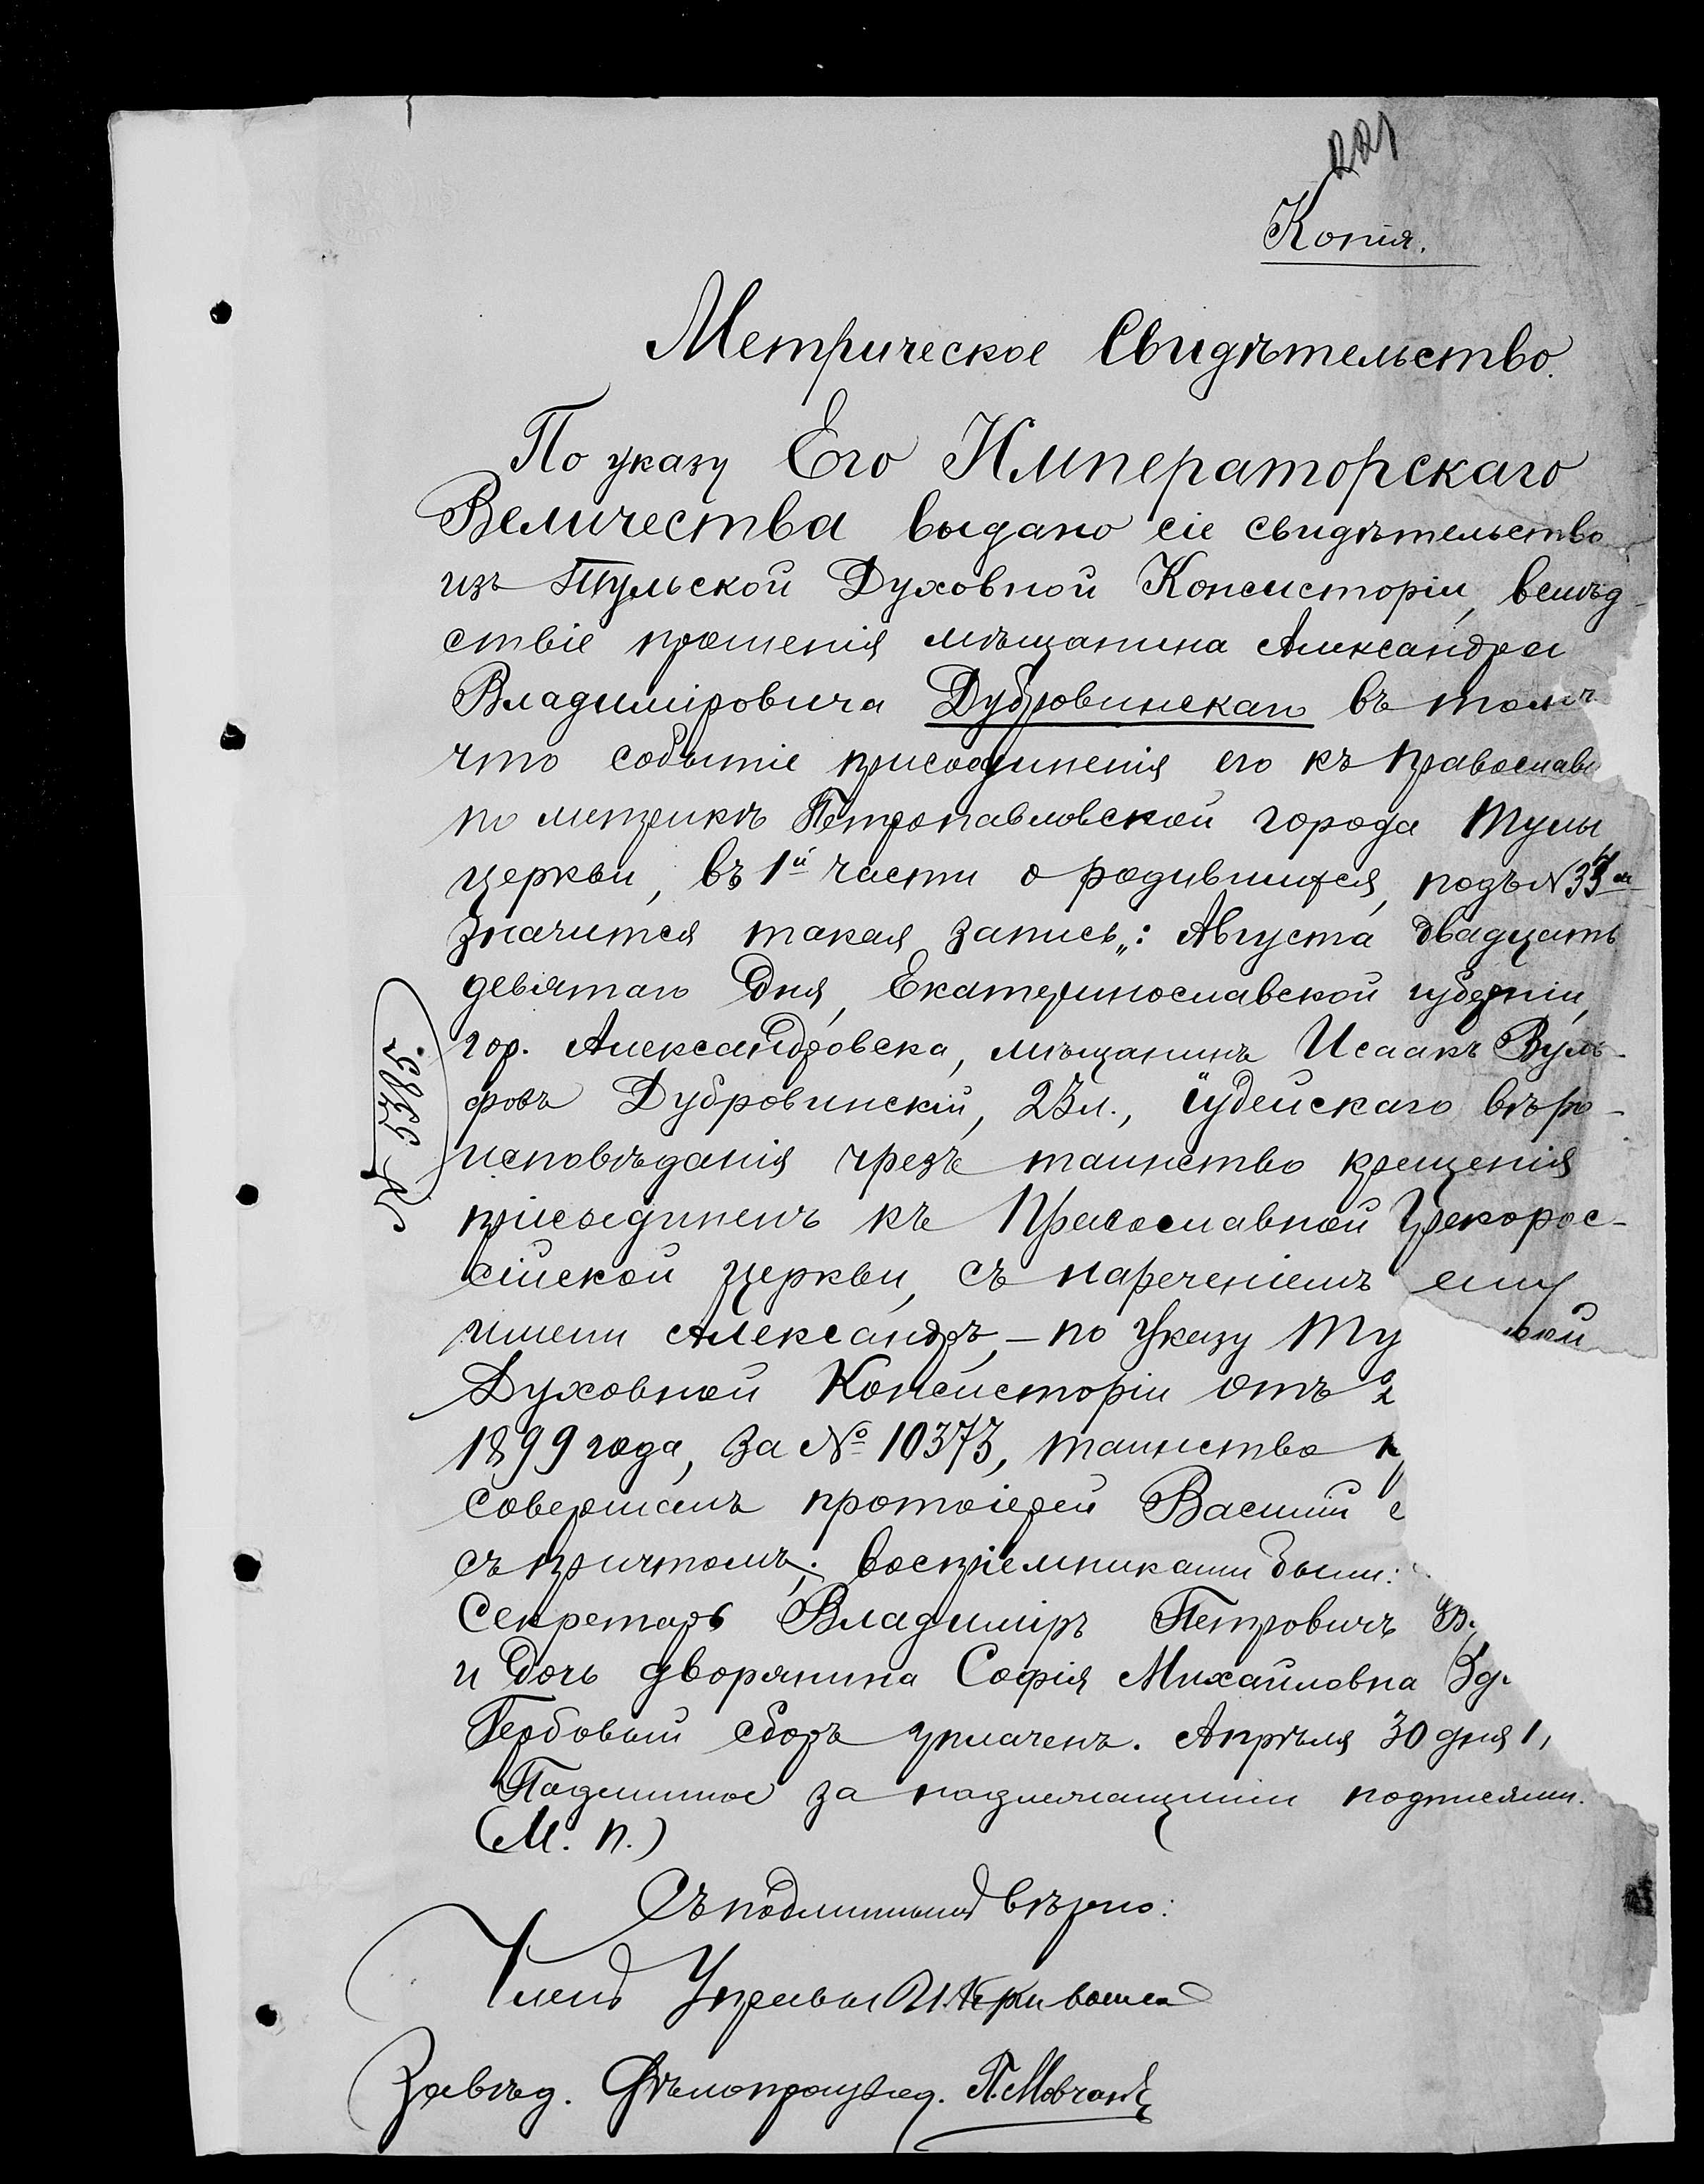 221
Копія.
Метрическое Свидѣтельство.
По указу Его Императорскаго
Величества выдано сіе свидѣтельство
изъ Тульской Духовной Консисторіи, вслѣд-
ствіе прошенія мѣщанина Александра
Владиміровича Дубровинскаго въ томъ
что событіе присоединенія его къ православі
по метрикѣ Петропавловской города Тулы
церкви, въ 1й части о родившихся, подъ №
значится такая запись„: Августа двадцать
девятаго дня, Екатеринославской губерніи,
гор. Александровска, мѣщанинъ Исаакъ Вуль-
фовъ Дубровинскій, 23 л., іудейскаго вѣро-
исповѣданія чрезъ таинство крещенія
присоединенъ къ Православной Грекорос-
сійской церкви, съ нареченіемъ ему
имени Александръ, – по указу Ту ской
Духовной Консисторіи отъ 2
1899 года, за № 10373, таинство к
совершалъ протоіерей Василій С
съ причтомъ; воспріемниками были:
Секретарь Владиміръ Петровичъ
и дочь дворянина Софія Михайловна Зд
Гербовый сборъ уплаченъ. Апрѣля 30 дня 1
Подлинное за надлежащими подписями.
(М. п.)
Съ подлиннымъ вѣрно:
Членъ Управы
Завѣд. Дѣлопроизвод. П. Мовчанъ
№ 5385.